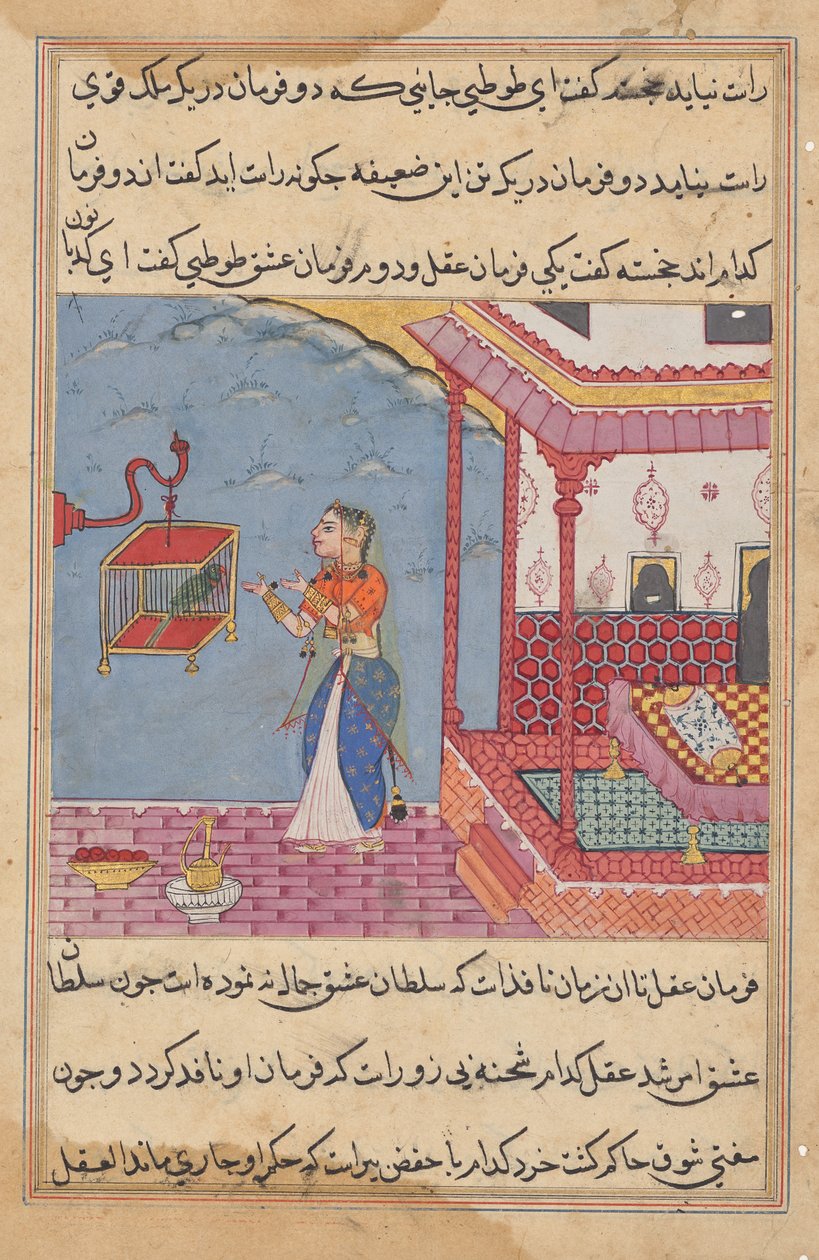 راست نیاید خجسته کفت ای طوطی جایئي که دو فرمان در یک ملک قوي
راست نیاید دو فرمان در یک تن این ضعیفه چکونه راست اید کفت ان دو فرمان
کدام اند خجسته کفت یکي فرمان عقل و دوم فرمان عشق طوطي کفت اي کدبانون
فرمان عقل تا ان زمان نافذ است که سلطان عشق جمال نه نموده است جون سلطان
عشق امر شد عقل کدام شحنه بي زور است که فرمان او نافد کردد و جون
مفتي شوق حاکم کشت خرد کدام با حفض پیر است که حکم او جاري ماند العقل